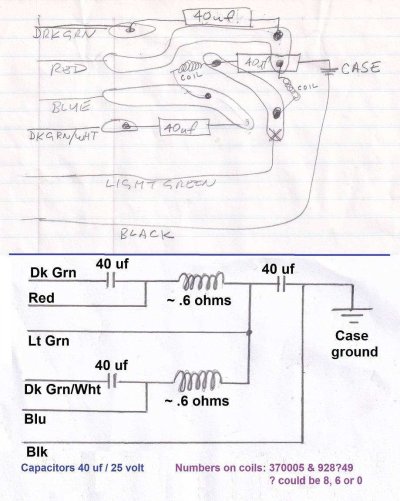 40uf
DRKGRN
40uf
CASE
RED
COIL
COIL
BLUE
DKGRN/WHT
40uf
LIGHT GREEN
BLACK
40 uf
40 uf
Dk Grn
Red
~ .6 ohms
Lt Grn
Case
ground
40 uf
Dk Grn/Wht
~ .6 ohms
Blu
Blk
Capacitors 40 uf / 25 volt
Numbers on coils: 370005 & 928?49
? could be 8, 6 or 0